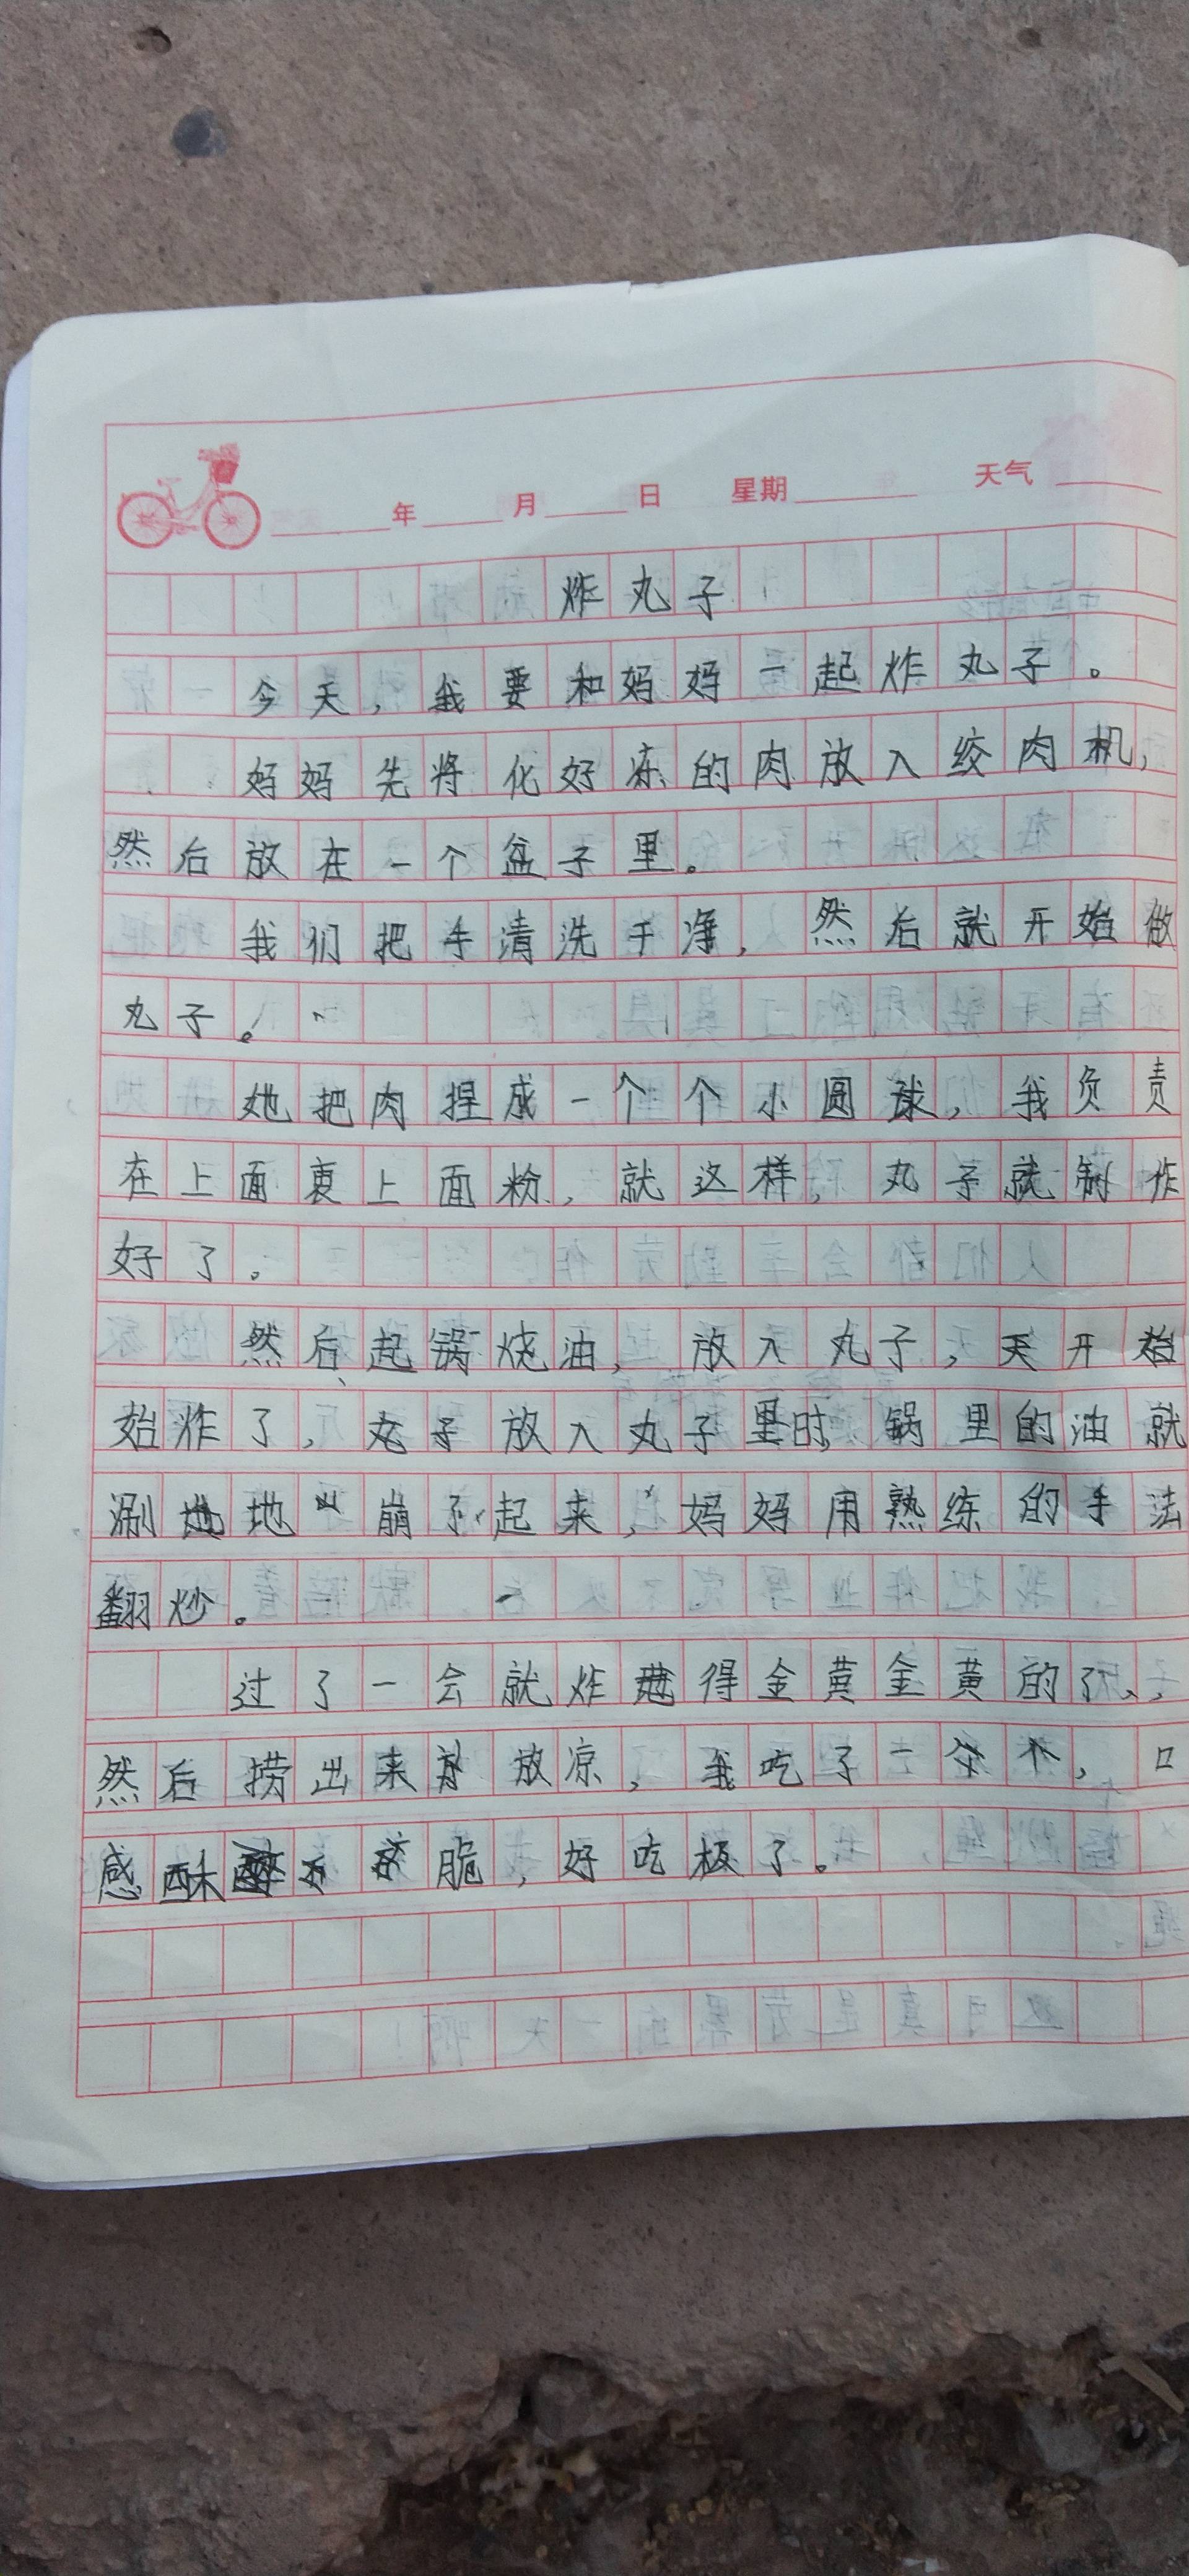 年 月 日 星期 天气
炸丸子
今天，我要和妈妈一起炸丸子。
妈妈先将化好冻的肉放入绞肉机，
然后放在一个盆子里。
我们把手清洗干净，然后就开始做
丸子。
她把肉捏成一个个小圆球，我负责
在上面裹上面粉，就这样，丸子就制作
好了。
然后起锅烧油，放入丸子，开
始炸了，丸子放入丸子里时，锅里的油就
涮地地崩了起来，妈妈用熟练的手法
翻炒。
过了一会就炸得金黄金黄的了，
然后捞出来放凉，我吃了一个，口
感酥脆，好吃极了。